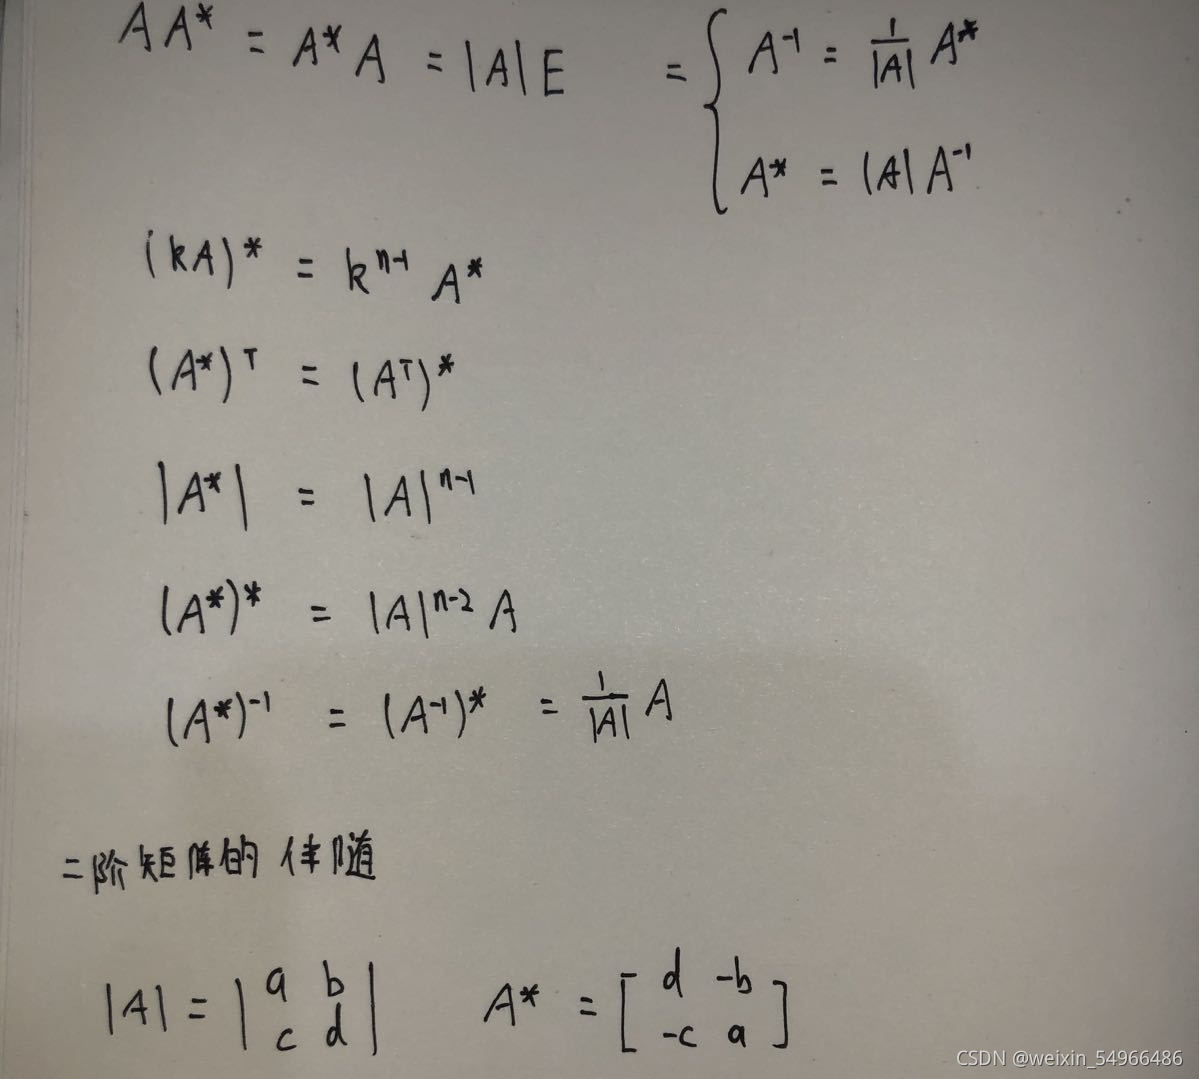 AA* = A*A = |A|E = { A⁻¹ = 1/|A| A*
A* = |A|A⁻¹
(kA)* = kⁿ⁻¹ A*
(A*)ᵀ = (Aᵀ)*
|A*| = |A|ⁿ⁻¹
(A*)* = |A|ⁿ⁻² A
(A*)⁻¹ = (A⁻¹)* = 1/|A| A
二阶矩阵的伴随
|A| = | a b
c d | A* = [ d -b
-c a ]
CSDN @weixin_54966486